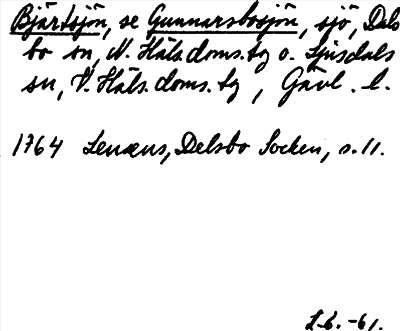 Bjärtsjön, se Gunnarsbosjön, sjö, Dels
bo sn, N. Häls. doms. tg o. Ljusdals
sn, V. Häls. doms. tg, Gävl. l.
1764 Lenæus, Delsbo Socken, s. 11.
L.b. -61.